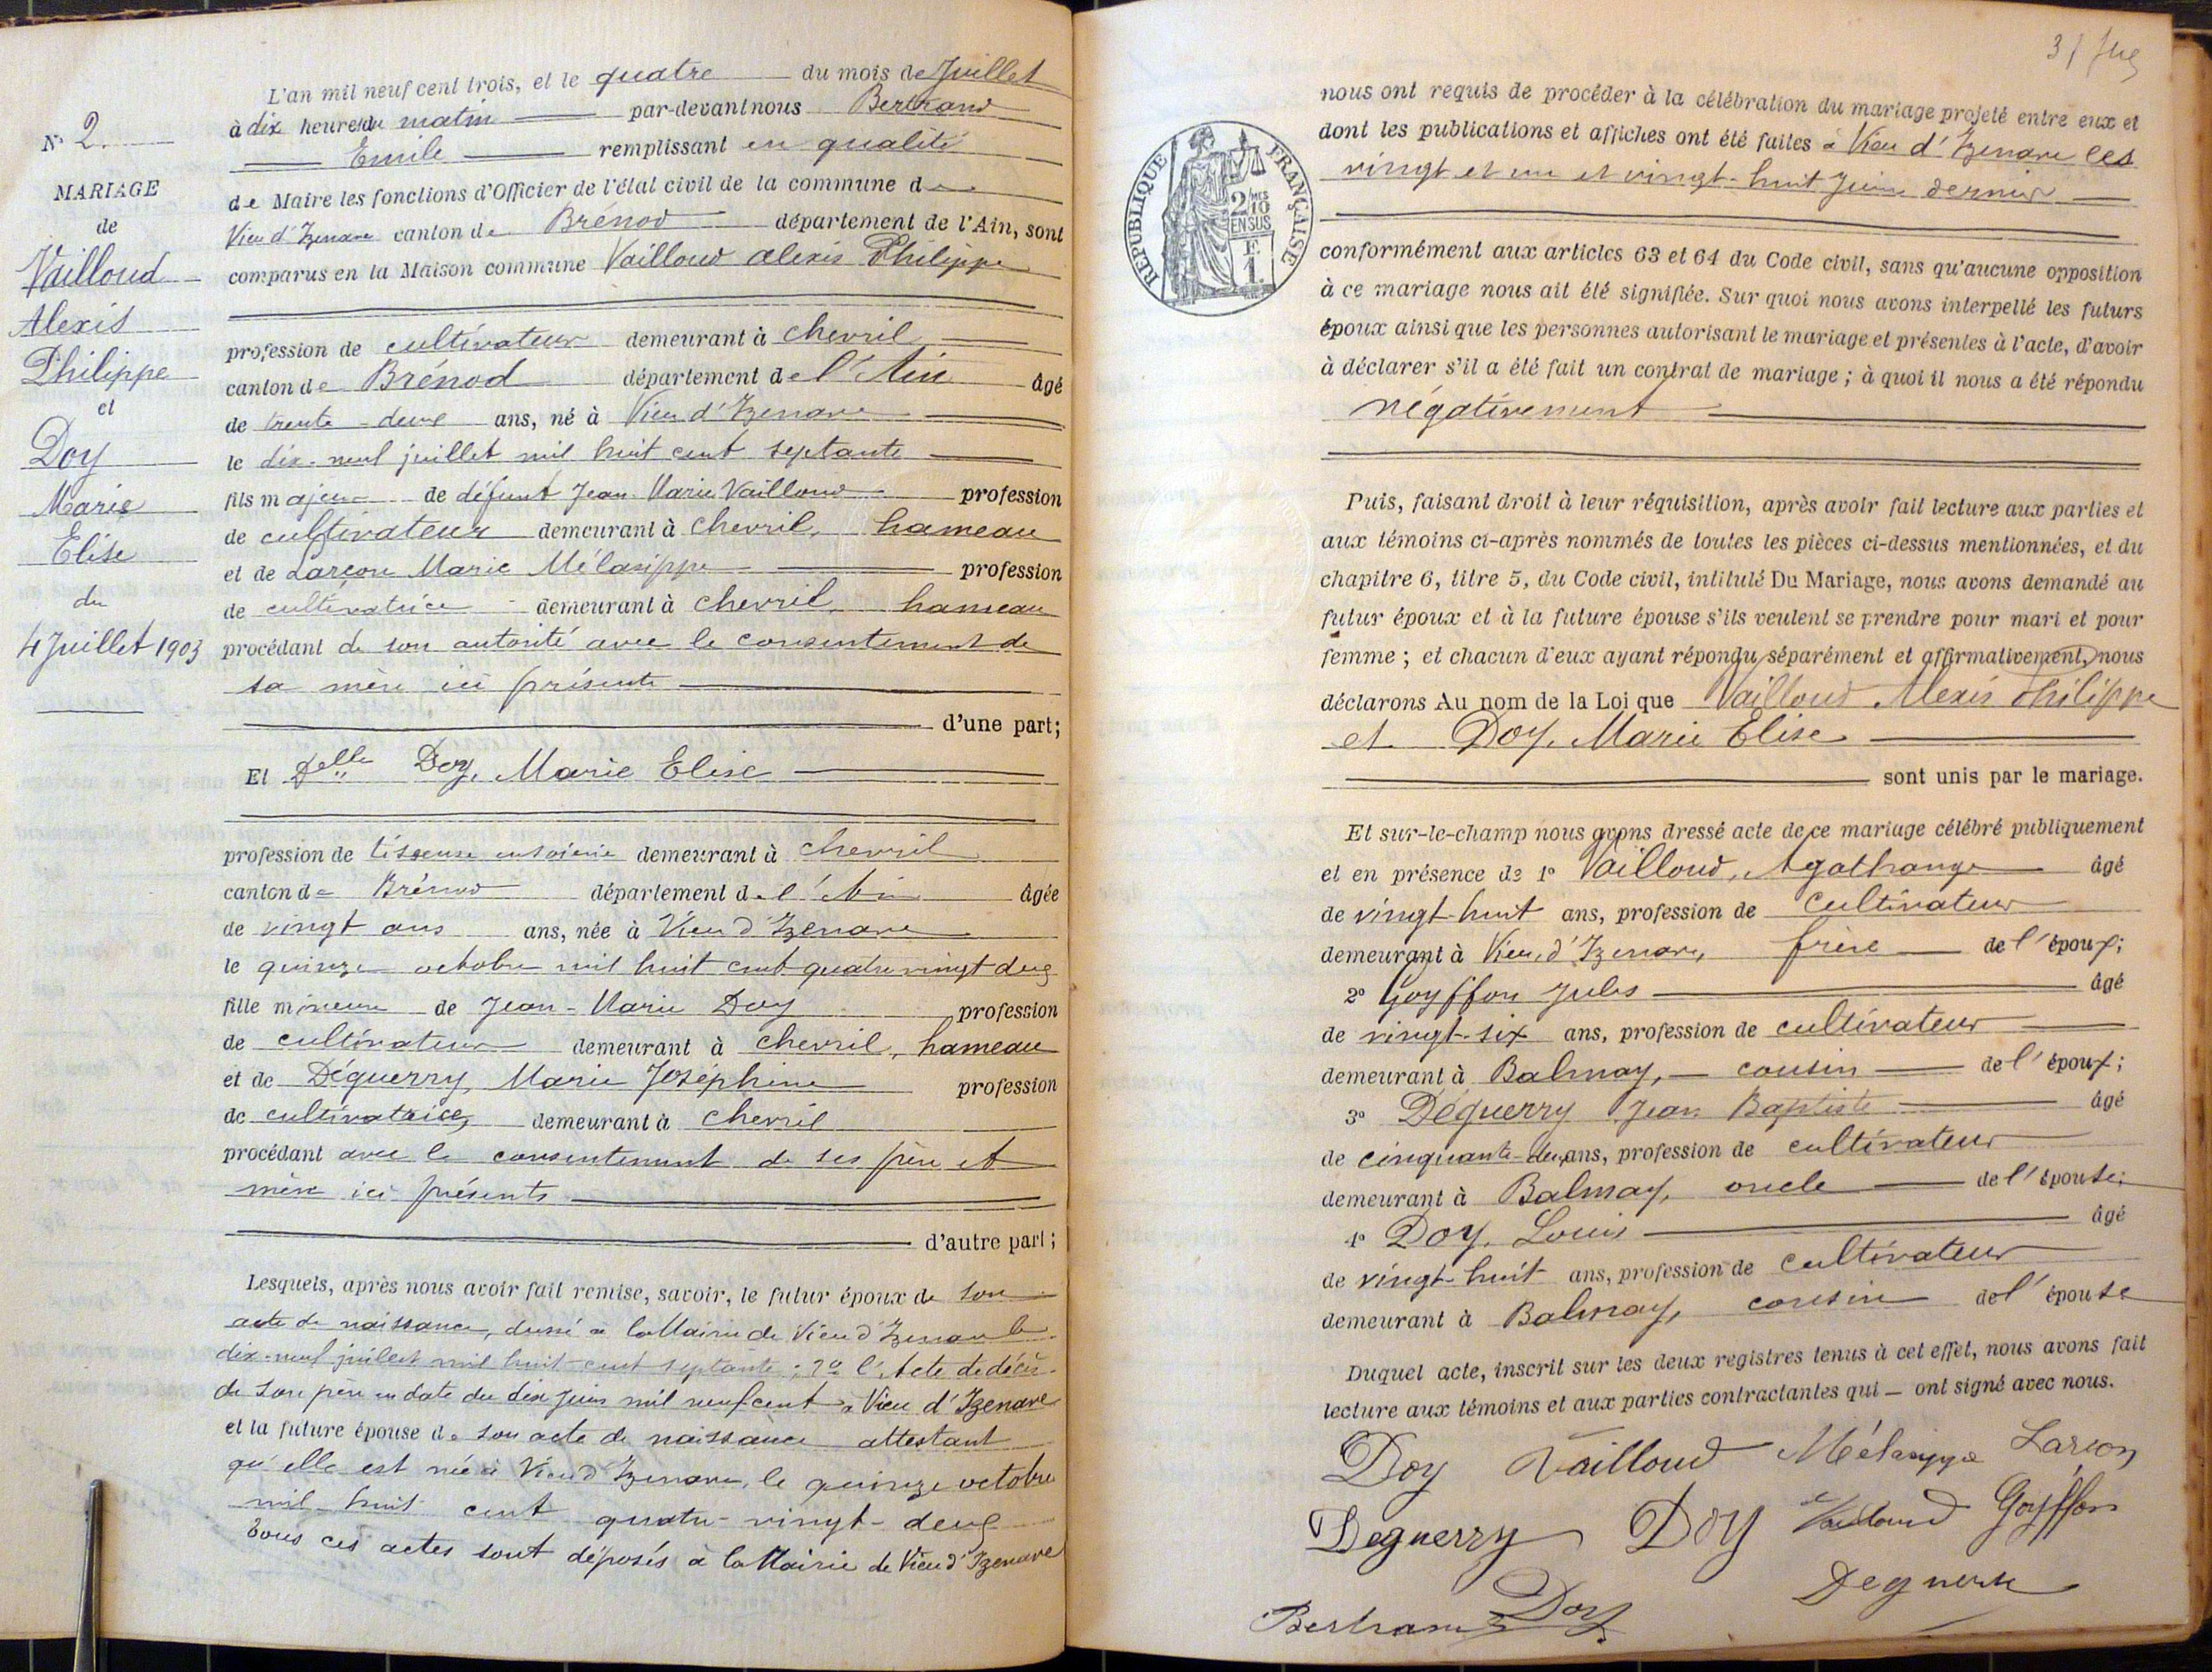 N° 2.
MARIAGE
de
Vailloud
Alexis
Philippe
et
Doy
Marie
Elise
du
4 Juillet 1903
L'an mil neuf cent trois, et le quatre du mois de Juillet
à dix heures du matin par-devant nous Bertrand
Emile remplissant en qualité
de Maire les fonctions d'Officier de l'état civil de la commune de
Vieu d'Izenave canton de Brénod département de l'Ain, sont
comparus en la Maison commune Vailloud alexis Philippe
profession de cultivateur demeurant à chevril
canton de Brénod département de l'Ain âgé
de trente-deux ans, né à Vieu d'Izenave
le dix-neuf juillet mil huit cent septante
fils majeur de défunt Jean Marie Vailloud profession
de cultivateur demeurant à chevril, hameau
et de Larçon Marie Mélasippe profession
de cultivatrice demeurant à chevril, hameau
procédant de son autorité avec le consentement de
sa mère ici présente
d'une part;
Et Delle Doy, Marie Elise
profession de tisseuse en soierie demeurant à chevril
canton de Brénod département de l'Ain âgée
de vingt ans ans, née à Vieu d'Izenave
le quinze octobre mil huit cent quatre vingt deux
fille mineure de Jean-Marie Doy profession
de cultivateur demeurant à chevril, hameau
et de Déguerry, Marie Joséphine profession
de cultivatrice, demeurant à chevril
procédant avec le consentement de ses père et
mère ici présents
d'autre part;
Lesquels, après nous avoir fait remise, savoir, le futur époux de son
acte de naissance, dressé à la Mairie de Vieu d'Izenave le
dix-neuf juillet mil huit cent septante; 2° l'Acte de décès
de son père en date du dix juin mil neuf cent à Vieu d'Izenave
et la future épouse de son acte de naissance attestant
qu'elle est née à Vieu d'Izenave, le quinze octobre
mil huit cent quatre-vingt-deux
Tous ces actes sont déposés à la Mairie de Vieu d'Izenave
3
RÉPUBLIQUE FRANÇAISE
2/10 MES
EN SUS
F.
1.
nous ont requis de procéder à la célébration du mariage projeté entre eux et
dont les publications et affiches ont été faites à Vieu d'Izenave les
vingt et un et vingt-huit Juin dernier
conformément aux articles 63 et 64 du Code civil, sans qu'aucune opposition
à ce mariage nous ait été signifiée. Sur quoi nous avons interpellé les futurs
époux ainsi que les personnes autorisant le mariage et présentes à l'acte, d'avoir
à déclarer s'il a été fait un contrat de mariage; à quoi il nous a été répondu
négativement
Puis, faisant droit à leur réquisition, après avoir fait lecture aux parties et
aux témoins ci-après nommés de toutes les pièces ci-dessus mentionnées, et du
chapitre 6, titre 5, du Code civil, intitulé Du Mariage, nous avons demandé au
futur époux et à la future épouse s'ils veulent se prendre pour mari et pour
femme; et chacun d'eux ayant répondu séparément et affirmativement, nous
déclarons Au nom de la Loi que Vailloud Alexis Philippe
et Doy, Marie Elise
sont unis par le mariage.
Et sur-le-champ nous avons dressé acte de ce mariage célébré publiquement
et en présence de 1° Vailloud, Agathange âgé
de vingt-huit ans, profession de cultivateur
demeurant à Vieu d'Izenave, frère de l'époux;
2° Goyffon Jules âgé
de vingt-six ans, profession de cultivateur
demeurant à Balmay, cousin de l'époux;
3° Déguerry Jean Baptiste âgé
de cinquante-deux ans, profession de cultivateur
demeurant à Balmay, oncle de l'épouse;
4° Doy, Louis âgé
de vingt-huit ans, profession de cultivateur
demeurant à Balmay, cousin de l'épouse
Duquel acte, inscrit sur les deux registres tenus à cet effet, nous avons fait
lecture aux témoins et aux parties contractantes qui ont signé avec nous.
Doy Vailloud Mélasippe Larçon
Deguerry Doy Vailloud Goyffon
Bertrand Doy Deguerry